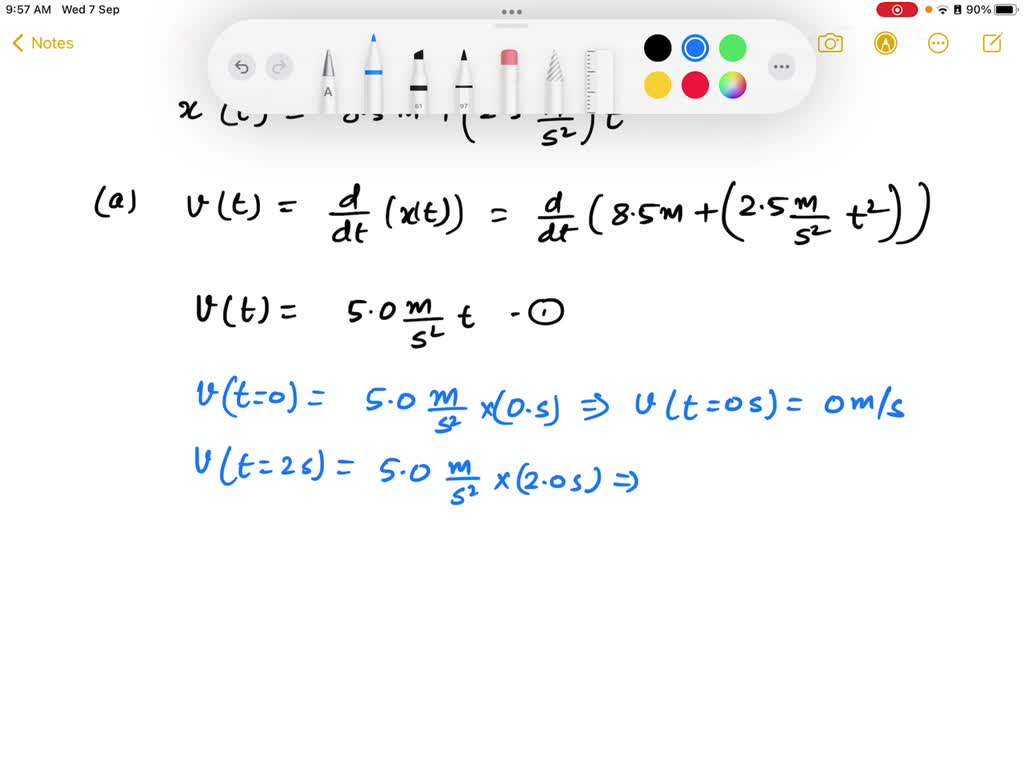 9:57 AM Wed 7 Sep 90%
Notes
A 81 97
x (t) =
s²) t
(a) v(t) = d/dt (x(t)) = d/dt (8.5m + (2.5 m/s² t²))
v(t) = 5.0 m/s² t - ①
v(t=0) = 5.0 m/s² ×(0.s) ⇒ v(t=0s) = 0 m/s
v(t=2s) = 5.0 m/s² ×(2.0s) ⇒